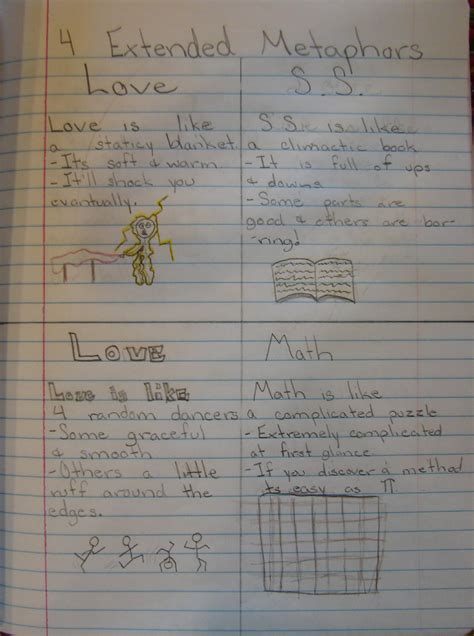 4 Extended Metaphors
Love
Love is like
a staticy blanket
-Its soft & warm
-It'll shock you
eventually.
S.S.
S.S. is like
a climactic book
-It is full of ups
& downs
-Some parts are
good & others are bor-
-ring!
Love
Love is like
4 random dancers
-Some graceful
& smooth
-Others a little
ruff around the
edges.
Math
Math is like
a complicated puzzle
-Extremely complicated
at first glance
-If you discover a method
its easy as π